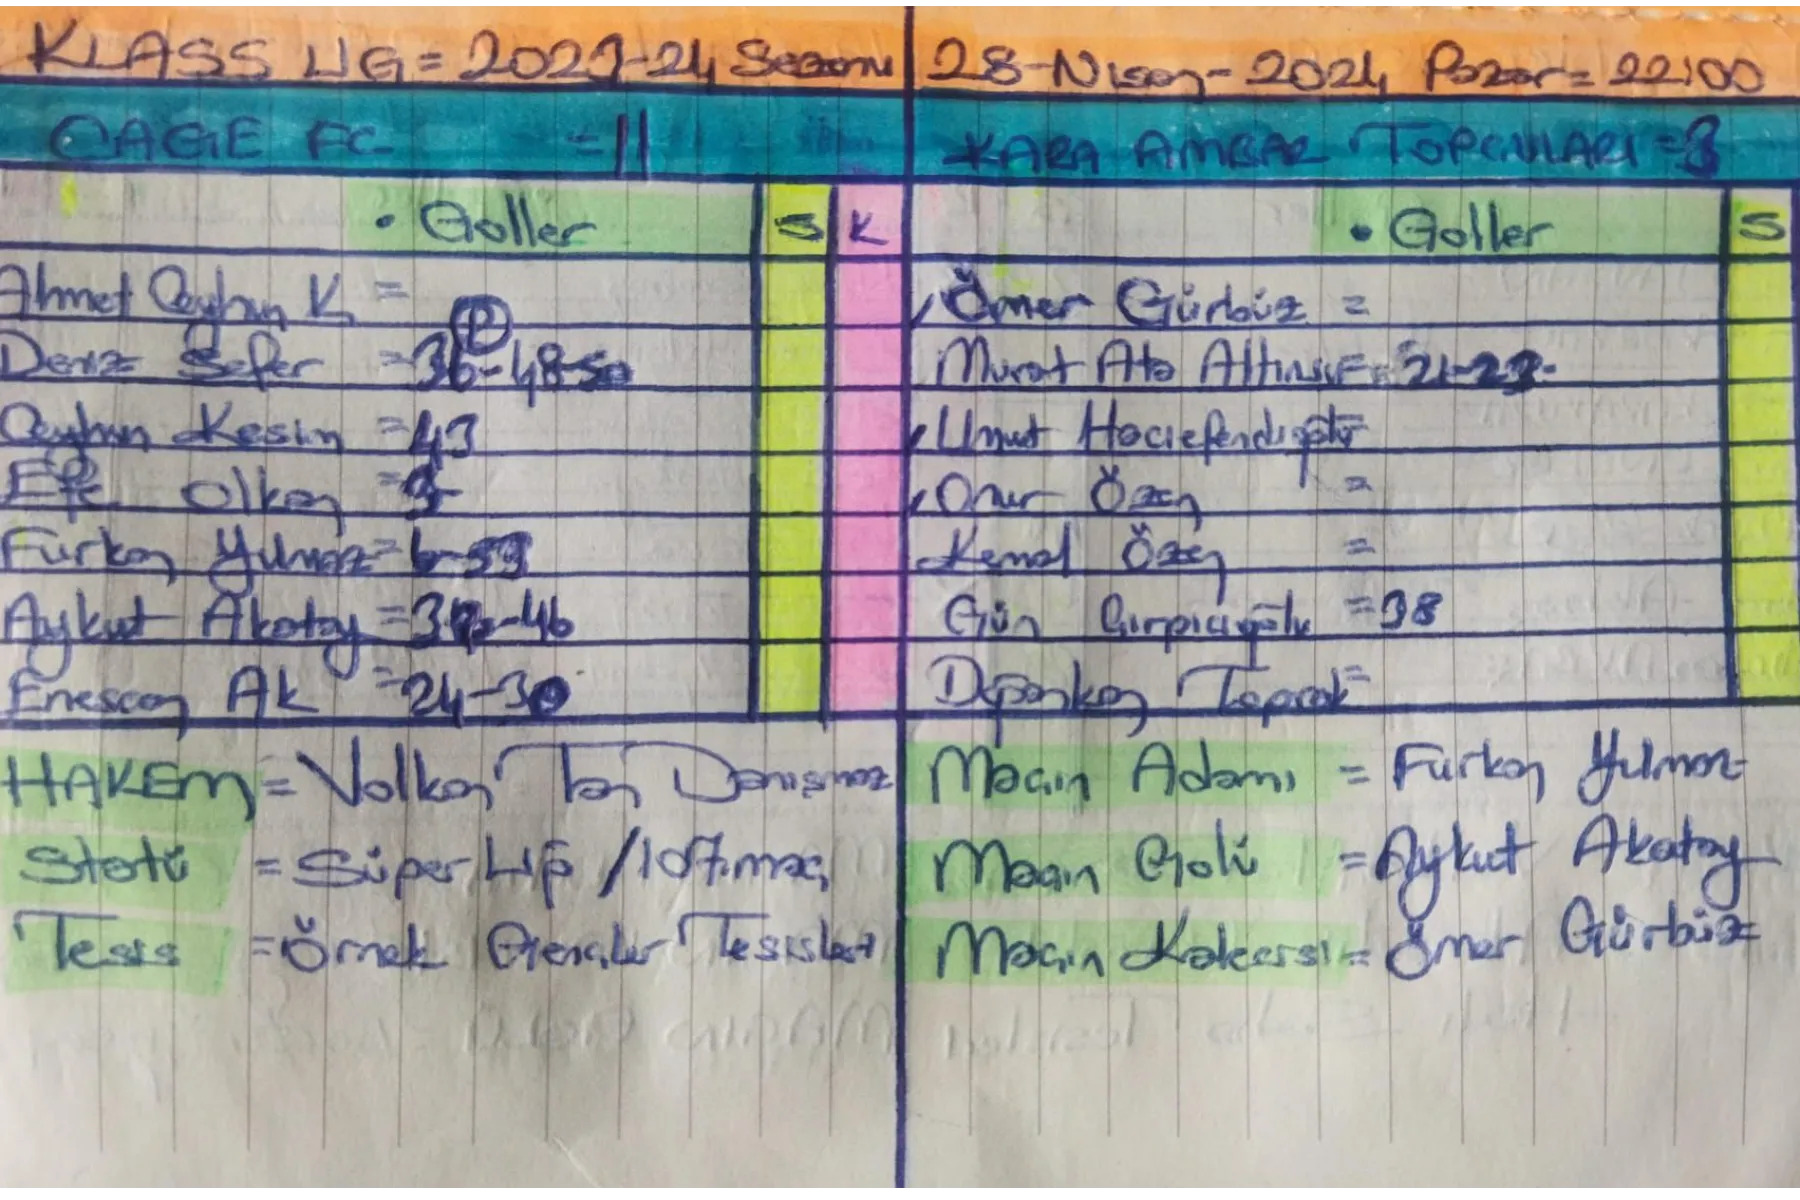 KLASS LİG = 2023-24 Sezonu
CAGIE FC = 11
• Goller S K
Ahmet Ceyhun K =
Deniz Sefer = 36 (P) - 48-50
Ceyhun Kesim = 43
Efe Olkan = 3-
Furkan Yılmaz = 6-33
Aykut Akatay = 37-46
Enescan Ak = 24-30
HAKEM = Volkan Tan Danışmaz
Statü = Süper Lig / 107.maç
Tesis = Örnek Gençler Tesisleri
28-Nisan-2024 Pazar = 22:00
KARA AMBAR TOPÇULARI = 3
• Goller S
Ömer Gürbüz =
Murat Ata = 21-23-
Umut Hacıefendioğlu =
Onur Özen =
Kemal Özen =
Gün Çırpıcıoğlu = 38
Toprak =
Maçın Adamı = Furkan Yılmaz
Maçın Golü = Aykut Akatay
Maçın Kalecisi = Ömer Gürbüz